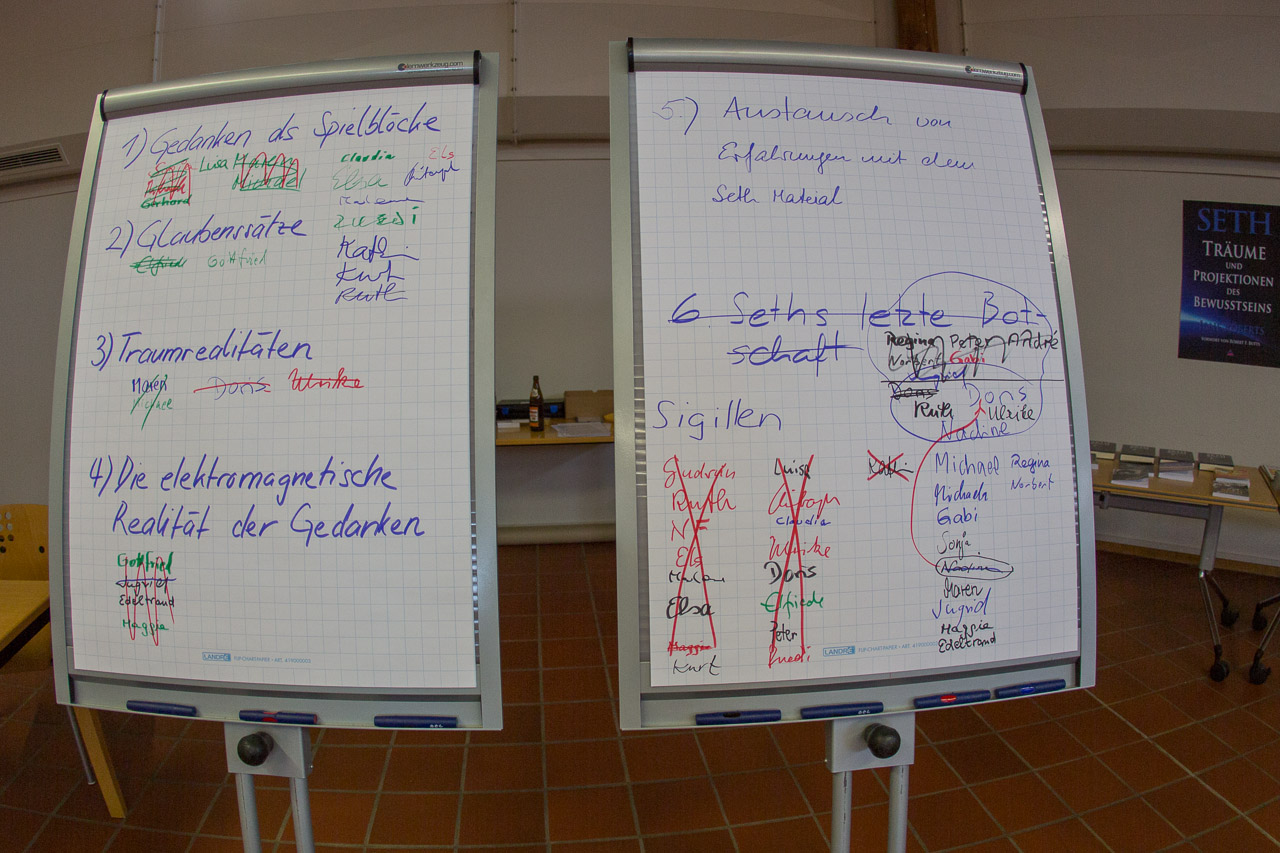 lernwerkzeug.com
1) Gedanken als Spielblöcke
Luisa Maren
Claudia
Els
Michael
Elsa
Christoph
Gerhard
2) Glaubenssätze
Ruedi
Elfriede
Gottfried
Kathi
Kurt
Ruth
3) Traumrealitäten
Maren
Doris
Ulrike
Michael
4) Die elektromagnetische
Realität der Gedanken
Gottfried
Ingrid
Edeltraud
Maggie
LANDRÉ FLIPCHARTPAPIER • ART. 419000002
lernwerkzeug.com
5.) Austausch von
Erfahrungen mit dem
Seth Material
6 Seths letzte Bot-
schaft
Regina Peter André
Norbert Gabi
Ingrid
Doris
Doris
Ruth
Ulrike
Nadine
Sigillen
Gudrun
Ruth
Els
Elsa
Maggie
Kurt
Luisa
Christoph
Claudia
Ulrike
Doris
Elfriede
Peter
Ruedi
Kathi
Michael
Regina
Norbert
Michael
Gabi
Sonja
Nadine
Maren
Ingrid
Maggie
Edeltraud
LANDRÉ FLIPCHARTPAPIER • ART. 419000002
SETH
TRÄUME
UND
PROJEKTIONEN
DES
BEWUSSTSEINS